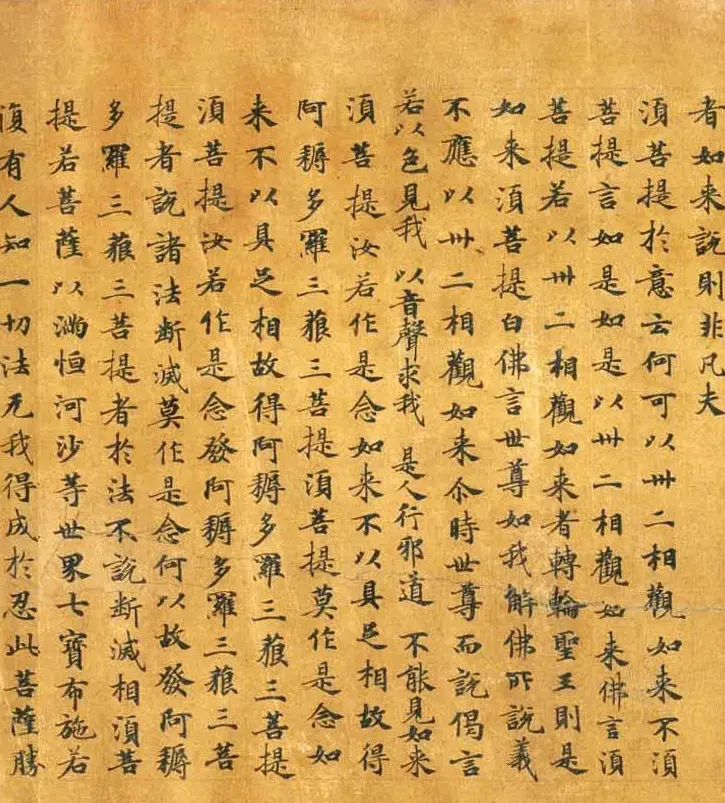 者如来説則非凡夫
須菩提於意云何可以卅二相觀如来不須
菩提言如是如是以卅二相觀如来佛言須
菩提若以卅二相觀如来者轉輪聖王則是
如来須菩提白佛言世尊如我解佛所說義
不應以卅二相觀如来尒時世尊而説偈言
若以色見我 以音聲求我 是人行邪道 不能見如来
須菩提汝若作是念如来不以具足相故得
阿耨多羅三藐三菩提須菩提莫作是念如
来不以具足相故得阿耨多羅三藐三菩提
須菩提汝若作是念發阿耨多羅三藐三菩
提者說諸法断滅莫作是念何以故發阿耨
多羅三藐三菩提者於法不說断滅相須菩
提若菩薩以滿恒河沙等世界七寶布施若
復有人知一切法无我得成於忍此菩薩勝